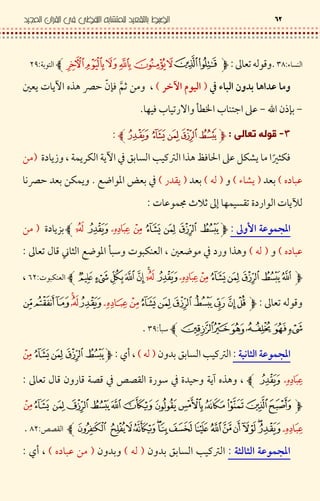 ٦٢ الضبط بالتقعيد للمتشابه اللفظي في القرآن المجيد
النساء:٣٨. وقوله تعالى : ﴿ قَٰتِلُوا۟ ٱلَّذِينَ لَا يُؤْمِنُونَ بِٱللَّهِ وَلَا بِٱلْيَوْمِ ٱلْءَاخِرِ ﴾ التوبة:٢٩
وما عداها بدون الباء في ( اليوم الآخر ) ، ومن ثَمَّ فإنّ حصر هذه الآيات يعين
– بإذن الله – على اجتناب الخطأ والارتياب فيها.
٣- قوله تعالى : ﴿ يَبْسُطُ ٱلرِّزْقَ لِمَن يَشَآءُ وَيَقْدِرُ ﴾ :
فكثيرًا ما يشكل على الحافظ هذا التركيب السابق في الآية الكريمة ، وزيادة (من
عباده ) بعد ( يشاء ) و ( له ) بعد ( يقدر ) في بعض المواضع . ويمكن بعد حصرنا
للآيات الواردة تقسيمها إلى ثلاث مجموعات :
المجموعة الأولى : ﴿ يَبْسُطُ ٱلرِّزْقَ لِمَن يَشَآءُ مِنْ عِبَادِهِۦ وَيَقْدِرُ لَهُۥٓ ﴾ بزيادة ( من
عباده ) و ( له ) وهذا ورد في موضعين ، العنكبوت وسبأ الموضع الثاني قال تعالى :
﴿ ٱللَّهُ يَبْسُطُ ٱلرِّزْقَ لِمَن يَشَآءُ مِنْ عِبَادِهِۦ وَيَقْدِرُ لَهُۥٓ إِنَّ ٱللَّهَ بِكُلِّ شَىْءٍ عَلِيمٌ ﴾ العنكبوت:٦٢ ،
وقوله تعالى : ﴿ قُلْ إِنَّ رَبِّى يَبْسُطُ ٱلرِّزْقَ لِمَن يَشَآءُ مِنْ عِبَادِهِۦ وَيَقْدِرُ لَهُۥ وَمَآ أَنفَقْتُم مِّن
شَىْءٍ فَهُوَ يُخْلِفُهُۥ وَهُوَ خَيْرُ ٱلرَّٰزِقِينَ ﴾ سبأ:٣٩ .
المجموعة الثانية : التركيب السابق بدون ( له ) ، أي : ﴿ يَبْسُطُ ٱلرِّزْقَ لِمَن يَشَآءُ مِنْ
عِبَادِهِۦ وَيَقْدِرُ ﴾ ، وهذه آية وحيدة في سورة القصص في قصة قارون قال تعالى :
﴿ وَأَصْبَحَ ٱلَّذِينَ تَمَنَّوْا۟ مَكَانَهُۥ بِٱلْأَمْسِ يَقُولُونَ وَيْكَأَنَّ ٱللَّهَ يَبْسُطُ ٱلرِّزْقَ لِمَن يَشَآءُ مِنْ
عِبَادِهِۦ وَيَقْدِرُ لَوْلَآ أَن مَّنَّ ٱللَّهُ عَلَيْنَا لَخَسَفَ بِنَا وَيْكَأَنَّهُۥ لَا يُفْلِحُ ٱلْكَٰفِرُونَ ﴾ القصص:٨٢ .
المجموعة الثالثة : التركيب السابق بدون ( له ) وبدون ( من عباده ) ، أي :